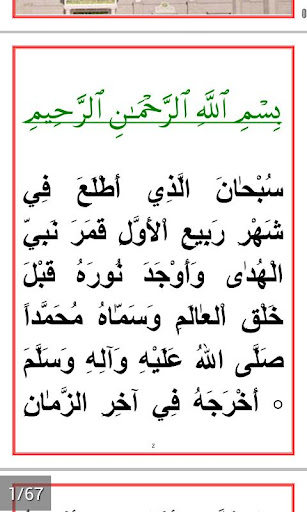 بِسْمِ ٱللَّهِ ٱلرَّحْمَـٰنِ ٱلرَّحِيمِ
سُبْحٰانَ الَّذِي أَطْلَعَ فِي
شَهْرِ رَبِيعِ ٱلأَوَّلِ قَمَرَ نَبِيِّ
الْهُدٰى وَأَوْجَدَ نُورَهُ قَبْلَ
خَلْقِ ٱلعٰالَمِ وَسَمّٰاهُ مُحَمَّداً
صَلَّى اللهُ عَلَيْهِ وَآلِهِ وَسَلَّمَ
○ أَخْرَجَهُ فِي آخِرِ الزَّمٰانِ
2
1/67